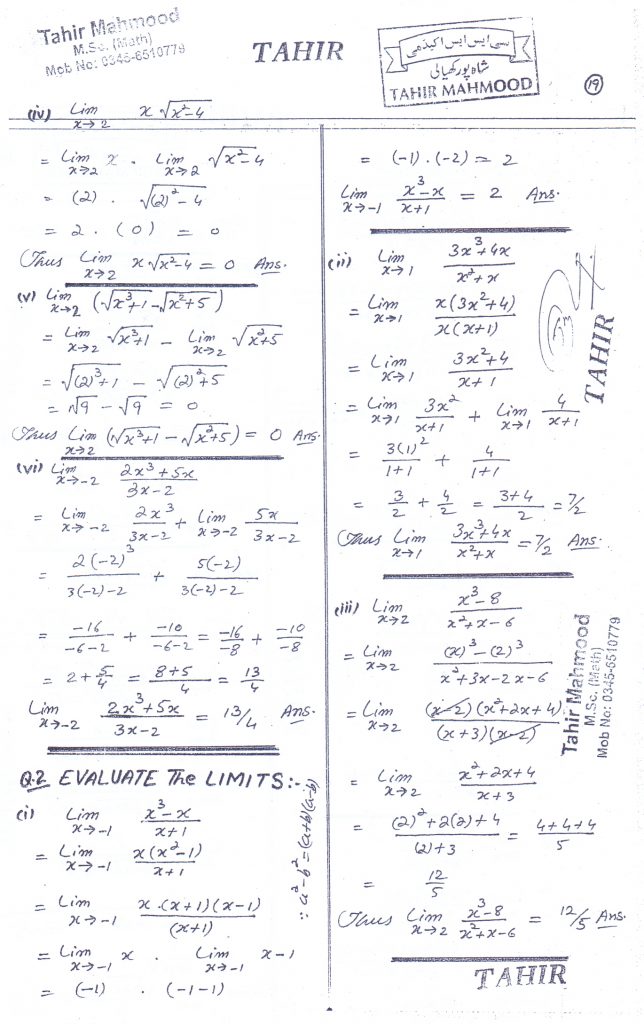 Tahir Mahmood
M.Sc. (Math)
Mob No: 0345-6510779
TAHIR
سی ایس ایس اکیڈمی
شاہ پور کھیالی
TAHIR MAHMOOD
19
(iv) Lim x→2 x√(x²-4)
= Lim x→2 x . Lim x→2 √(x²-4)
= (2) . √((2)²-4)
= 2 . (0) = 0
Thus Lim x→2 x√(x²-4) = 0 Ans.
(v) Lim x→2 (√(x³+1) - √(x²+5))
= Lim x→2 √(x³+1) - Lim x→2 √(x²+5)
= √((2)³+1) - √((2)²+5)
= √9 - √9 = 0
Thus Lim x→2 (√(x³+1) - √(x²+5)) = 0 Ans.
(vi) Lim x→-2 (2x³+5x)/(3x-2)
= Lim x→-2 2x³/(3x-2) + Lim x→-2 5x/(3x-2)
= 2(-2)³/(3(-2)-2) + 5(-2)/(3(-2)-2)
= -16/(-6-2) + -10/(-6-2) = -16/-8 + -10/-8
= 2 + 5/4 = (8+5)/4 = 13/4
Lim x→-2 (2x³+5x)/(3x-2) = 13/4 Ans.
Q.2 EVALUATE The LIMITS:-
(i) Lim x→-1 (x³-x)/(x+1)
= Lim x→-1 x(x²-1)/(x+1)
= Lim x→-1 x.(x+1)(x-1)/(x+1)
= Lim x→-1 x . Lim x→-1 x-1
= (-1) . (-1-1)
∵ a²-b²=(a+b)(a-b)
= (-1).(-2) = 2
Lim x→-1 (x³-x)/(x+1) = 2 Ans.
(ii) Lim x→1 (3x³+4x)/(x²+x)
= Lim x→1 x(3x²+4)/(x(x+1))
= Lim x→1 (3x²+4)/(x+1)
= Lim x→1 3x²/(x+1) + Lim x→1 4/(x+1)
= 3(1)²/(1+1) + 4/(1+1)
= 3/2 + 4/2 = (3+4)/2 = 7/2
Thus Lim x→1 (3x³+4x)/(x²+x) = 7/2 Ans.
TAHIR
(iii) Lim x→2 (x³-8)/(x²+x-6)
= Lim x→2 ((x)³-(2)³)/(x²+3x-2x-6)
= Lim x→2 (x-2)(x²+2x+4)/((x+3)(x-2))
= Lim x→2 (x²+2x+4)/(x+3)
= ((2)²+2(2)+4)/((2)+3) = (4+4+4)/5
= 12/5
Thus Lim x→2 (x³-8)/(x²+x-6) = 12/5 Ans.
Tahir Mahmood
M.Sc. (Math)
Mob No: 0345-6510779
TAHIR